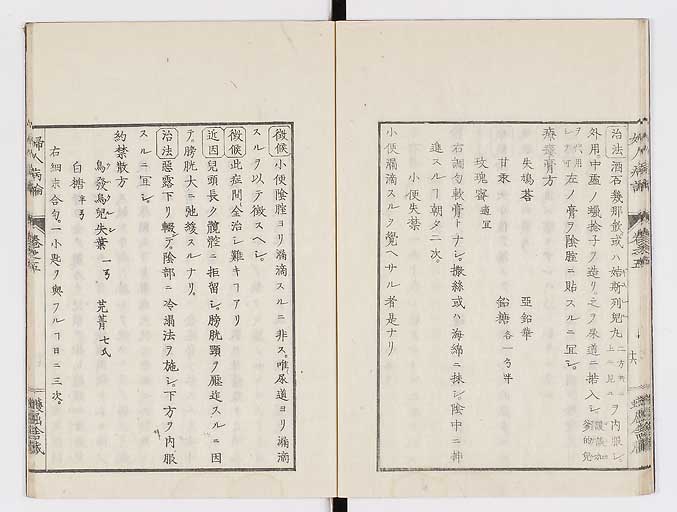 治法 酒石幾那飲或ハ始斯列兒丸ヲ内服シ
外用中 蠟捻子ヲ造リ之ヲ尿道ニ揩入シ
左ノ膏ヲ陰腔ニ貼スルニ冝シ。
療痿膏方
失鳩荅 亞鉛華
甘汞 鉛糖 各一ヲ半
玫瑰蜜 適冝
右調匀軟膏トナシ。撒絲或ハ海綿ニ抹シ陰中ニ
進スルヿ朝夕二次。
小便失禁
小便漏滴スルヲ覺ヘサル者是ナリ
徴候 小便陰腔ヨリ漏滴スルニ非ス。唯尿道ヨリ漏滴
スルヲ以テ徴スヘシ。
徴候 此症間全治シ難キヿアリ
近因 兒頭長ク髖腔ニ拒留シ。膀胱頸ヲ壓迮スルニ因
テ膀胱大ニ弛緩スルナリ。
治法 惡露下リ輟テ。陰部ニ冷溻法ヲ施シ。下方ヲ内服
スルニ冝シ。
約禁散方
烏發烏兒失葉 一ヲ 芫菁 七氏
白糖 半ヲ
右細末合匀。一小匙ヲ與フルヿ日ニ三次。
婦人病論 卷之五